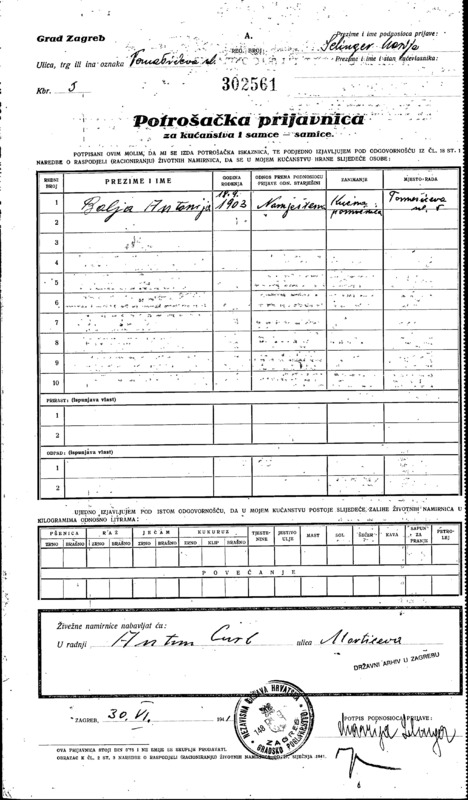 Grad Zagreb
A.
Prezime i ime podnosioca prijave:
REG. BROJ
Selinger Marija
Ulica, trg ili ina oznaka Tomašićeva ul.
Prezime i ime i stan kućevlasnika:
Kbr. 5
302561
Potrošačka prijavnica
za kućanstva i samce – samice.
POTPISANI OVIM MOLIM, DA MI SE IZDA POTROŠAČKA ISKAZNICA, TE PODJEDNO IZJAVLJUJEM POD ODGOVORNOŠĆU IZ ČL. 18 ST. 1
NAREDBE O RASPODJELI (RACIONIRANJU) ŽIVOTNIH NAMIRNICA, DA SE U MOJEM KUĆANSTVU HRANE SLIJEDEĆE OSOBE:
REDNI BROJ PREZIME I IME GODINA ROĐENJA ODNOS PREMA PODNOSIOCU PRIJAVE ODN. STARJEŠINI ZANIMANJE MJESTO RADA
1 Balja Antonija 1903 Namještena Kućna pomoćnica Tomašićeva ul. 5
2
3
4
5
6
7
8
9
10
PRIRAST: (Ispunjava vlast)
1
2
OTPAD: (Ispunjava vlast)
1
2
UJEDNO IZJAVLJUJEM POD ISTOM ODGOVORNOŠĆU, DA U MOJEM KUĆANSTVU POSTOJE SLIJEDEĆE ZALIHE ŽIVOTNIH NAMIRNICA U
KILOGRAMIMA ODNOSNO LITRAMA:
PŠENICA RAŽ JEČAM KUKURUZ TJESTENINE JESTIVO ULJE MAST SOL ŠEĆER KAVA SAPUN ZA PRANJE PETROLEJ
ZRNO BRAŠNO ZRNO BRAŠNO ZRNO BRAŠNO ZRNO KLIP BRAŠNO
POVEĆANJE
Živežne namirnice nabavljat ću:
U radnji Antun ulica Martićeva
DRŽAVNI ARHIV U ZAGREBU
ZAGREB, 30. VI. 194
NEZAVISNA DRŽAVA HRVATSKA
ZAGREB
GRADSKO POGLAVARSTVO
POTPIS PODNOSIOCA PRIJAVE:
Marija Selinger
OVA PRIJAVNICA STOJI DIN 0'75 I NE SMIJE SE SKUPLJE PRODAVATI.
OBRAZAC K ČL. 2 ST. 3 NAREDBE O RASPODJELI (RACIONIRANJU) ŽIVOTNIH NAMIRNICA OD SIJEČNJA 1941.